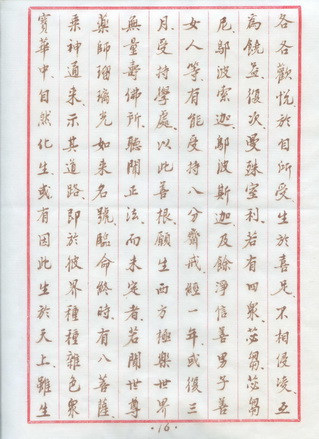 各各歡悅於自所受生於喜足不相侵凌互
為饒益復次曼殊室利若有四眾苾芻苾芻
尼鄔波索迦鄔波斯迦及餘淨信善男子善
女人等有能受持八分齋戒經一年或復三
月受持學處以此善根願生西方極樂世界
無量壽佛所聽聞正法而未定者若聞世尊
藥師瑠璃光如來名號臨命終時有八菩薩
乘神通來示其道路即於彼界種種雜色眾
寶華中自然化生或有因此生於天上雖生
·16·